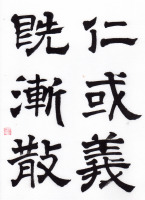 仁或義
既漸散